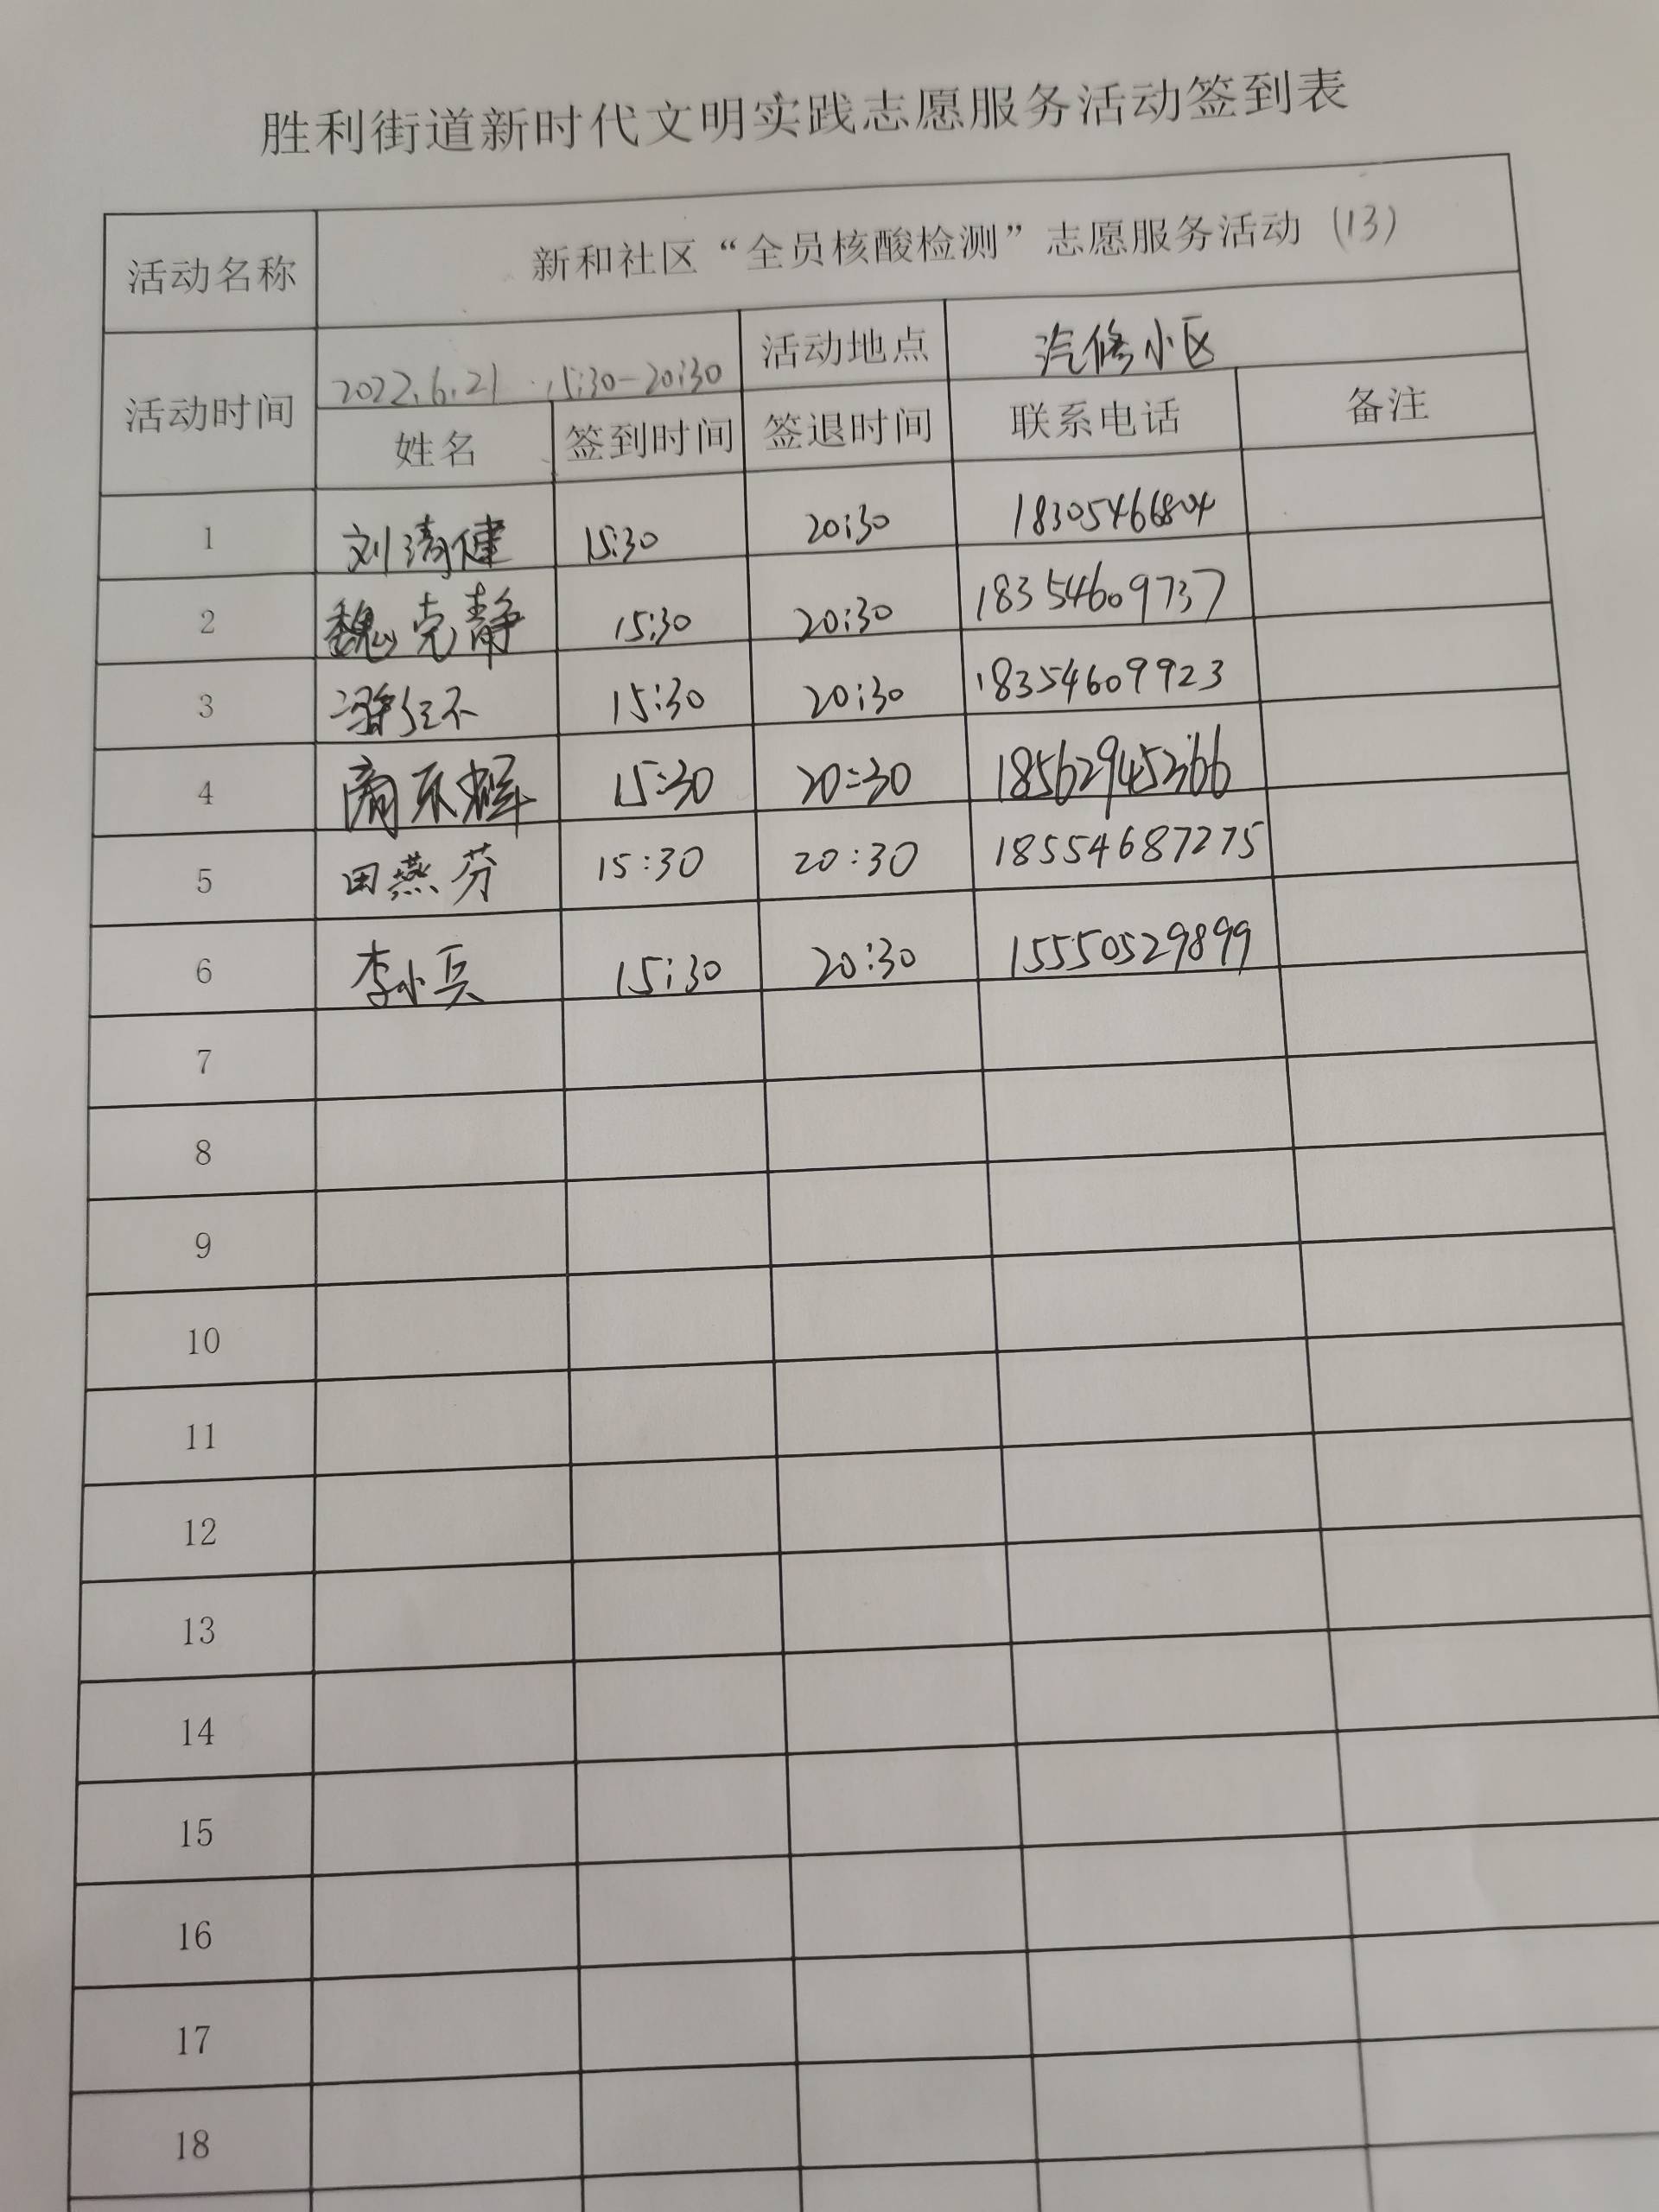 胜利街道新时代文明实践志愿服务活动签到表
活动名称 新和社区“全员核酸检测”志愿服务活动 (13)
活动时间 2022.6.21 15:30-20:30 活动地点 汽修小区
姓名 签到时间 签退时间 联系电话 备注
1 刘清健 15:30 20:30 18305466804
2 魏克静 15:30 20:30 18354609737
3 15:30 20:30 18354609923
4 15:30 20:30 18562945366
5 田燕芬 15:30 20:30 18554687275
6 李小兵 15:30 20:30 15550529899
7
8
9
10
11
12
13
14
15
16
17
18